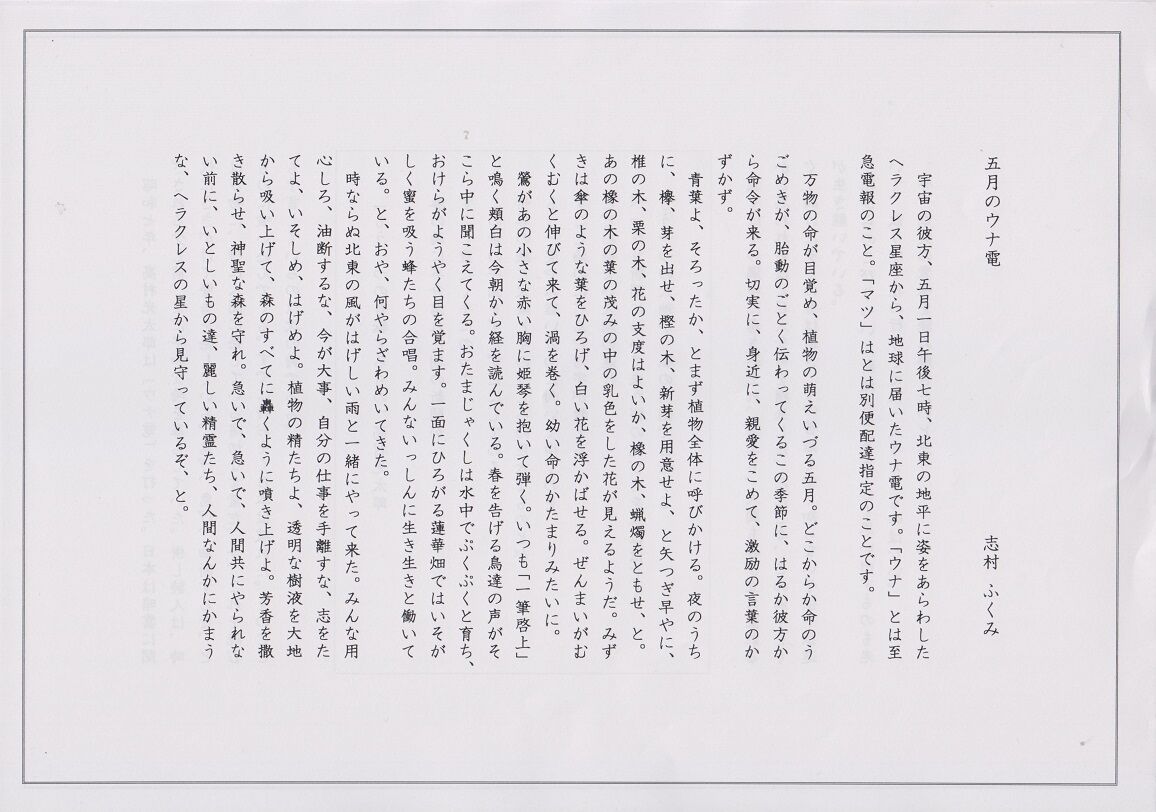 五月のウナ電
志村 ふくみ
宇宙の彼方、五月一日午後七時、北東の地平に姿をあらわした
ヘラクレス星座から、地球に届いたウナ電です。「ウナ」とは至
急電報のこと。「マツ」はとは別便配達指定のことです。
万物の命が目覚め、植物の萌えいづる五月。どこからか命のう
ごめきが、胎動のごとく伝わってくるこの季節に、はるか彼方か
ら命令が来る。切実に、身近に、親愛をこめて、激励の言葉のか
ずかず。
青葉よ、そろったか、とまず植物全体に呼びかける。夜のうち
に、欅、芽を出せ、樫の木、新芽を用意せよ、と矢つぎ早やに、
椎の木、栗の木、花の支度はよいか、橡の木、蝋燭をともせ、と。
あの橡の木の葉の茂みの中の乳色をした花が見えるようだ。みず
きは傘のような葉をひろげ、白い花を浮かばせる。ぜんまいがむ
くむくと伸びて来て、渦を巻く。幼い命のかたまりみたいに。
鶯があの小さな赤い胸に姫琴を抱いて弾く。いつも「一筆啓上」
と鳴く頬白は今朝から経を読んでいる。春を告げる鳥達の声がそ
こら中に聞こえてくる。おたまじゃくしは水中でぷくぷくと育ち、
おけらがようやく目を覚ます。一面にひろがる蓮華畑ではいそが
しく蜜を吸う蜂たちの合唱。みんないっしんに生き生きと働いて
いる。と、おや、何やらざわめいてきた。
時ならぬ北東の風がはげしい雨と一緒にやって来た。みんな用
心しろ、油断するな、今が大事、自分の仕事を手離すな、志をた
てよ、いそしめ、はげめよ。植物の精たちよ、透明な樹液を大地
から吸い上げて、森のすべてに轟くように噴き上げよ。芳香を撒
き散らせ、神聖な森を守れ。急いで、急いで、人間共にやられな
い前に、いとしいもの達、麗しい精霊たち、人間なんかにかまう
な、ヘラクレスの星から見守っているぞ、と。